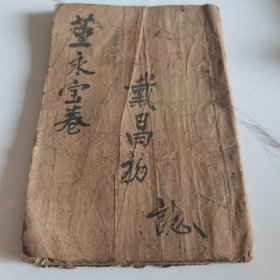 董永宝卷
戴昌初
誌